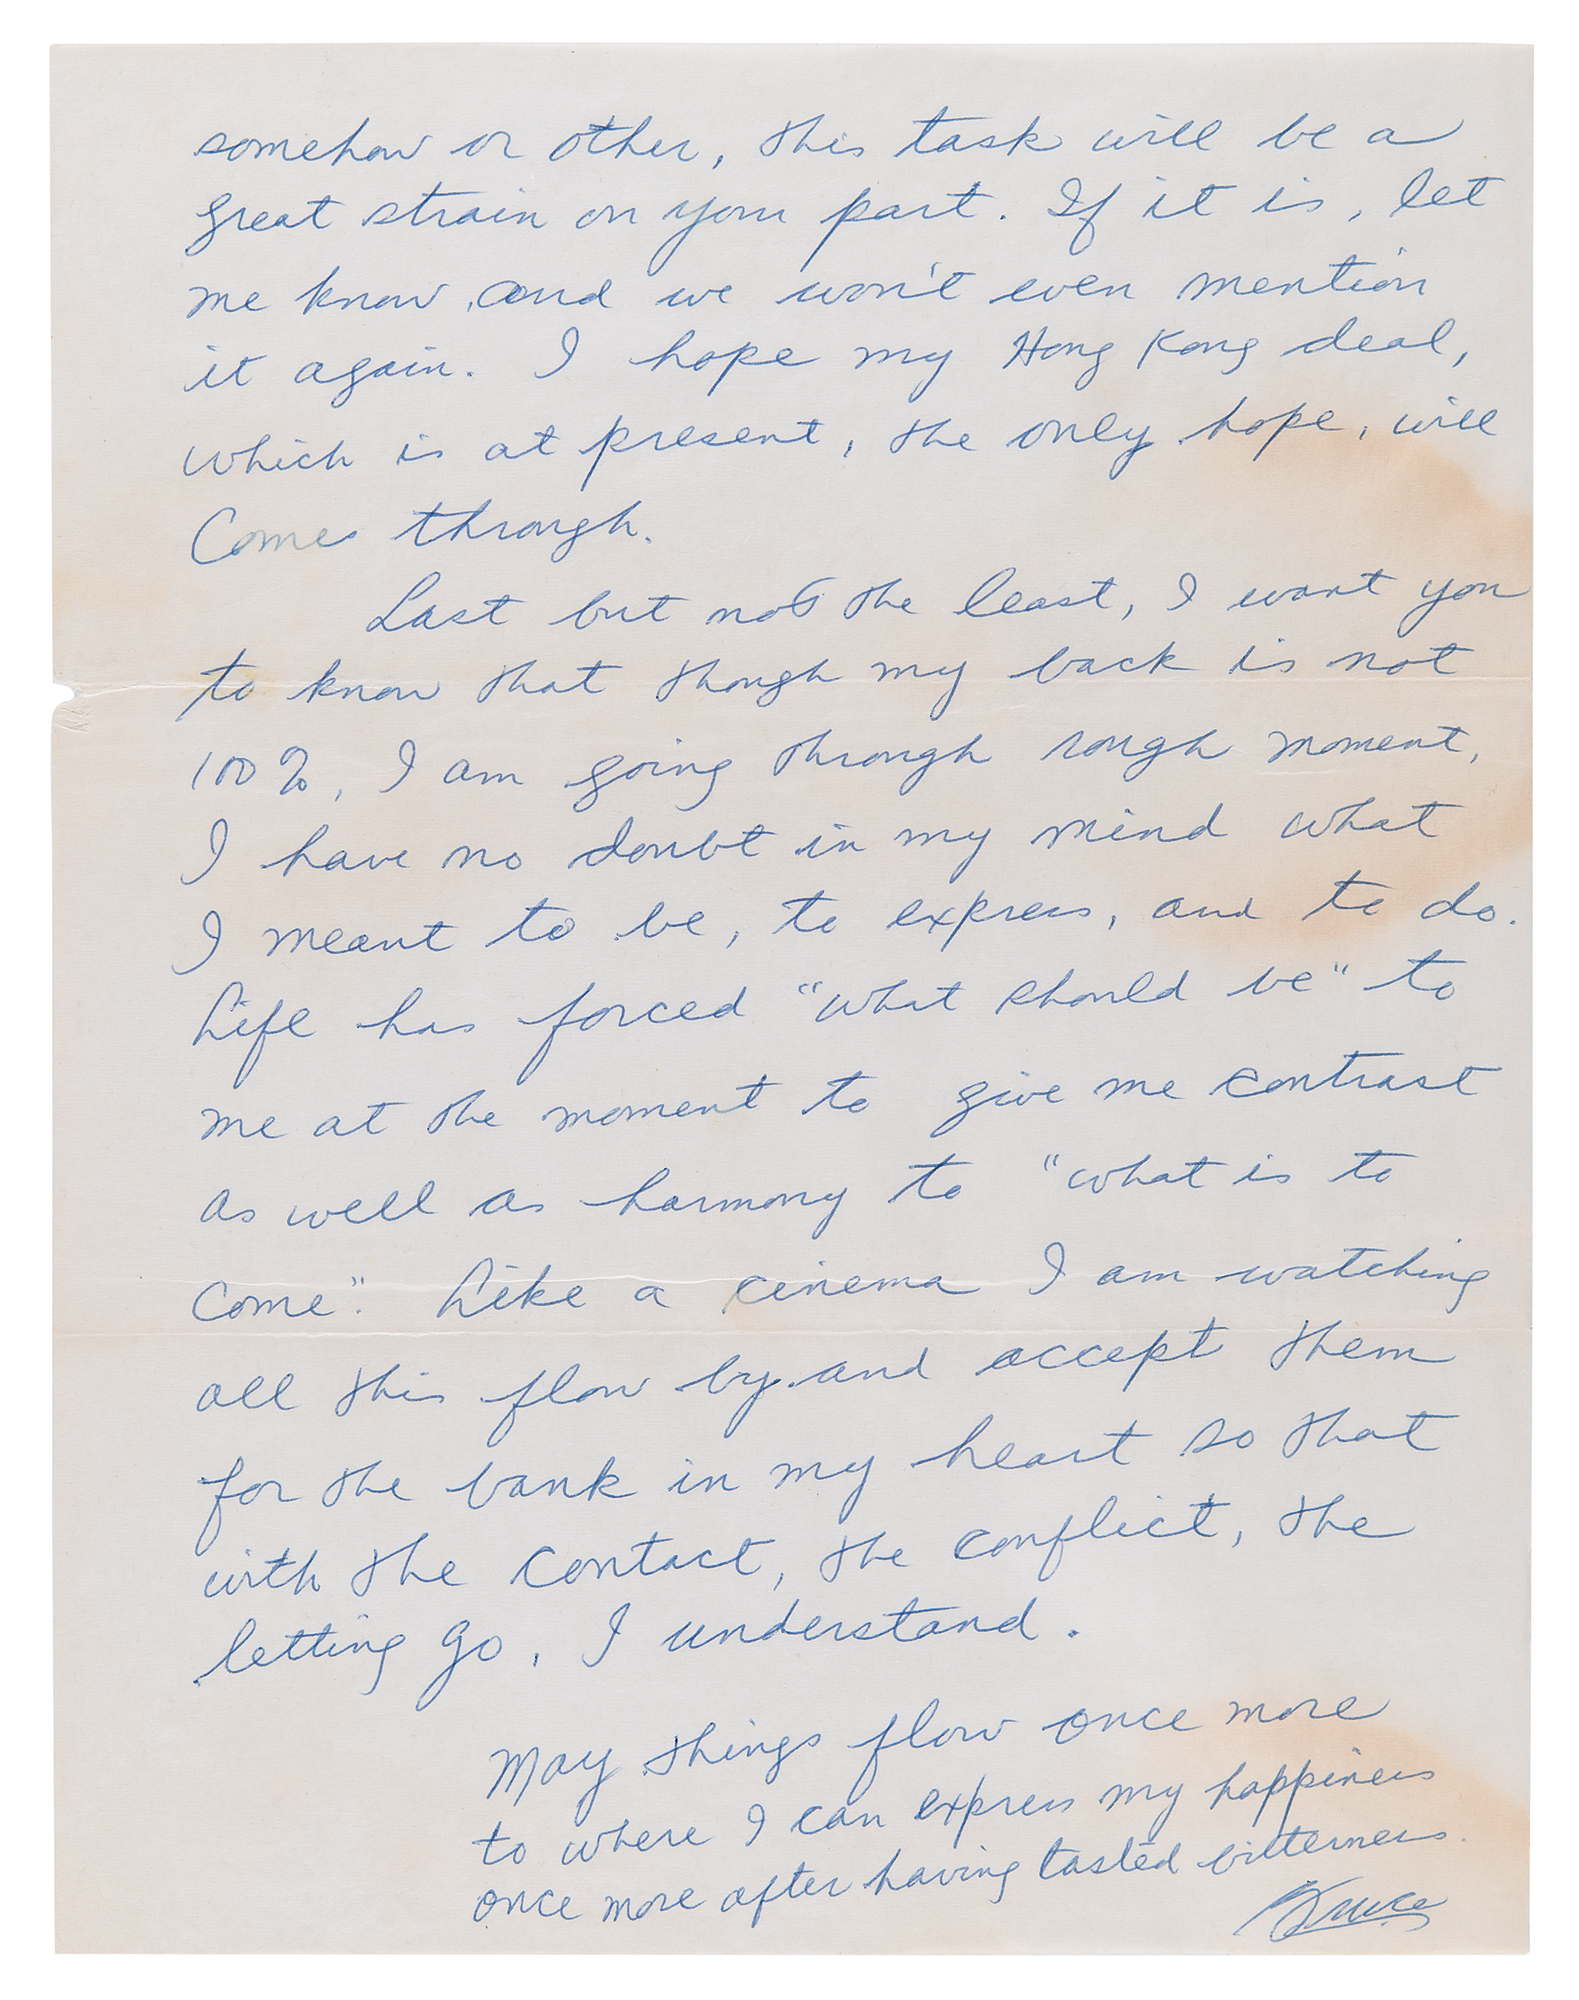 somehow or other, this task will be a
great strain on your part. If it is, let
me know, and we won't even mention
it again. I hope my Hong Kong deal,
which is at present, the only hope, will
Come through.
Last but not the least, I want you
to know that though my back is not
100%, I am going through rough moment,
I have no doubt in my mind what
I meant to be, to express, and to do.
Life has forced "what should be" to
me at the moment to give me contrast
as well as harmony to "what is to
come". Like a cinema I am watching
all this flow by and accept them
for the bank in my heart so that
with the contact, the conflict, the
letting go, I understand.
May things flow once more
to where I can express my happiness
once more after having tasted bitterness.
Bruce